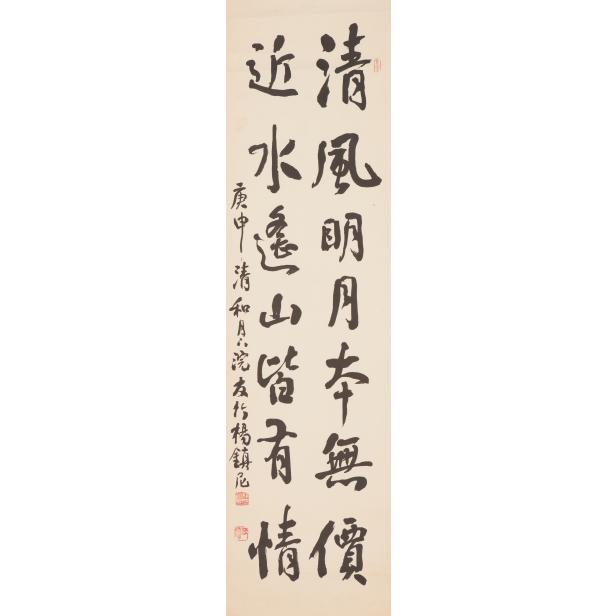 清風明月本無價
近水遙山皆有情
庚申清和月下浣友竹楊鎮尼